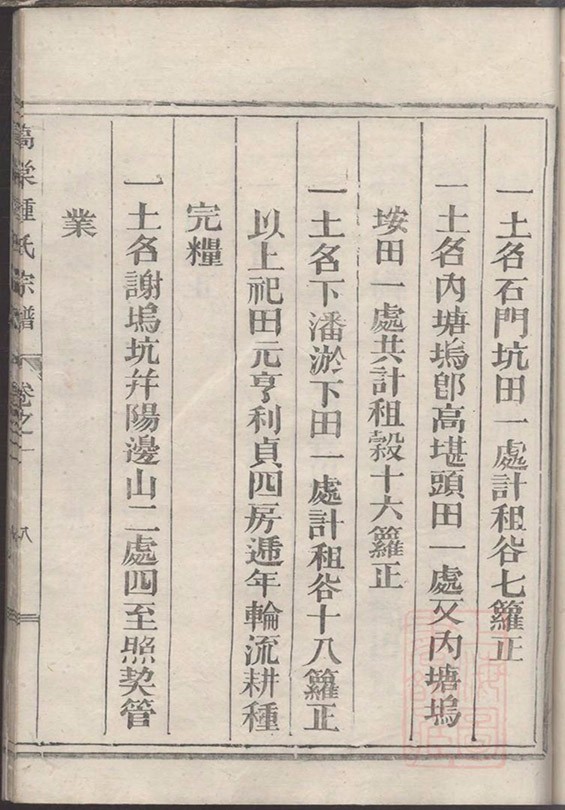 一土名石門坑田一處計租谷七籮正
一土名內塘塢卽高堪頭田一處又內塘塢
垵田一處共計租榖十六籮正
一土名下潘淤下田一處計租谷十八籮正
以上祀田元亨利貞四房遞年輪流耕種
完糧
一土名謝塢坑幷陽邊山二處四至照契管
業
鍾氏宗譜
卷之一
八